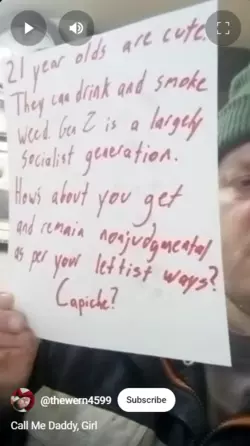 21 year olds are cute.
They can drink and smoke
weed. Gen Z is a largely
socialist generation.
Hows about you get
and remain nonjudgmental
as per your leftist ways?
Capiche?
@thewern4599
Subscribe
Call Me Daddy, Girl